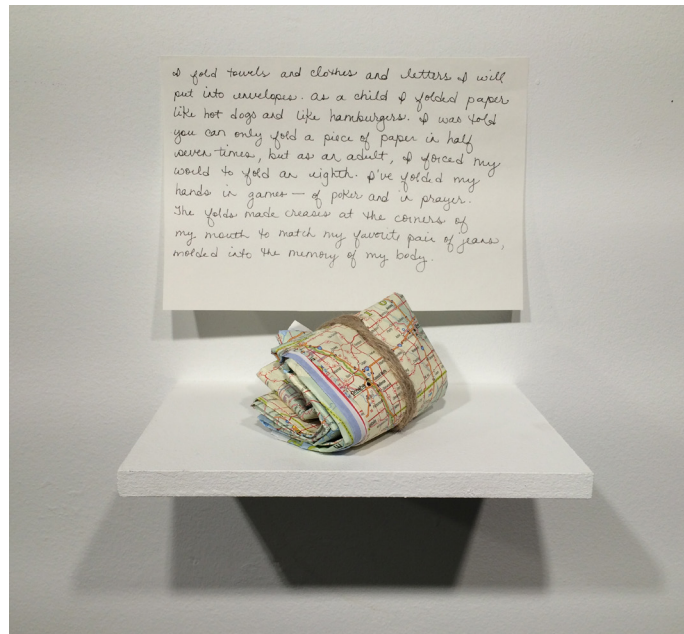 I fold towels and clothes and letters I will
put into envelopes. As a child I folded paper
like hot dogs and like hamburgers. I was told
you can only fold a piece of paper in half
seven times, but as an adult, I forced my
world to fold an eighth. I've folded my
hands in games — of poker and in prayer.
The folds made creases at the corners of
my mouth to match my favorite pair of jeans,
molded into the memory of my body.